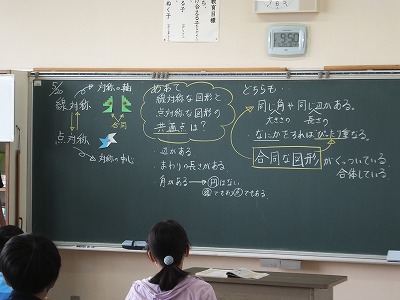 教育目標
5/20
線対称
対称の軸
点対称
対称の中心
めあて
線対称な図形と
点対称な図形の
共通点は？
辺がある
まわりの長さがある
角がある→円はない
線でもあり点でもある。
どちらも…
同じ角や同じ辺がある。
大きさの 長さの
なにかをすればぴったり重なる。
合同な図形がくっついている。
合体している。